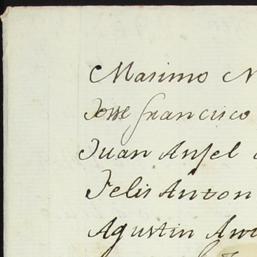 Masimo
Jose francisco
Juan Anjel
Felis Anton
Agustin